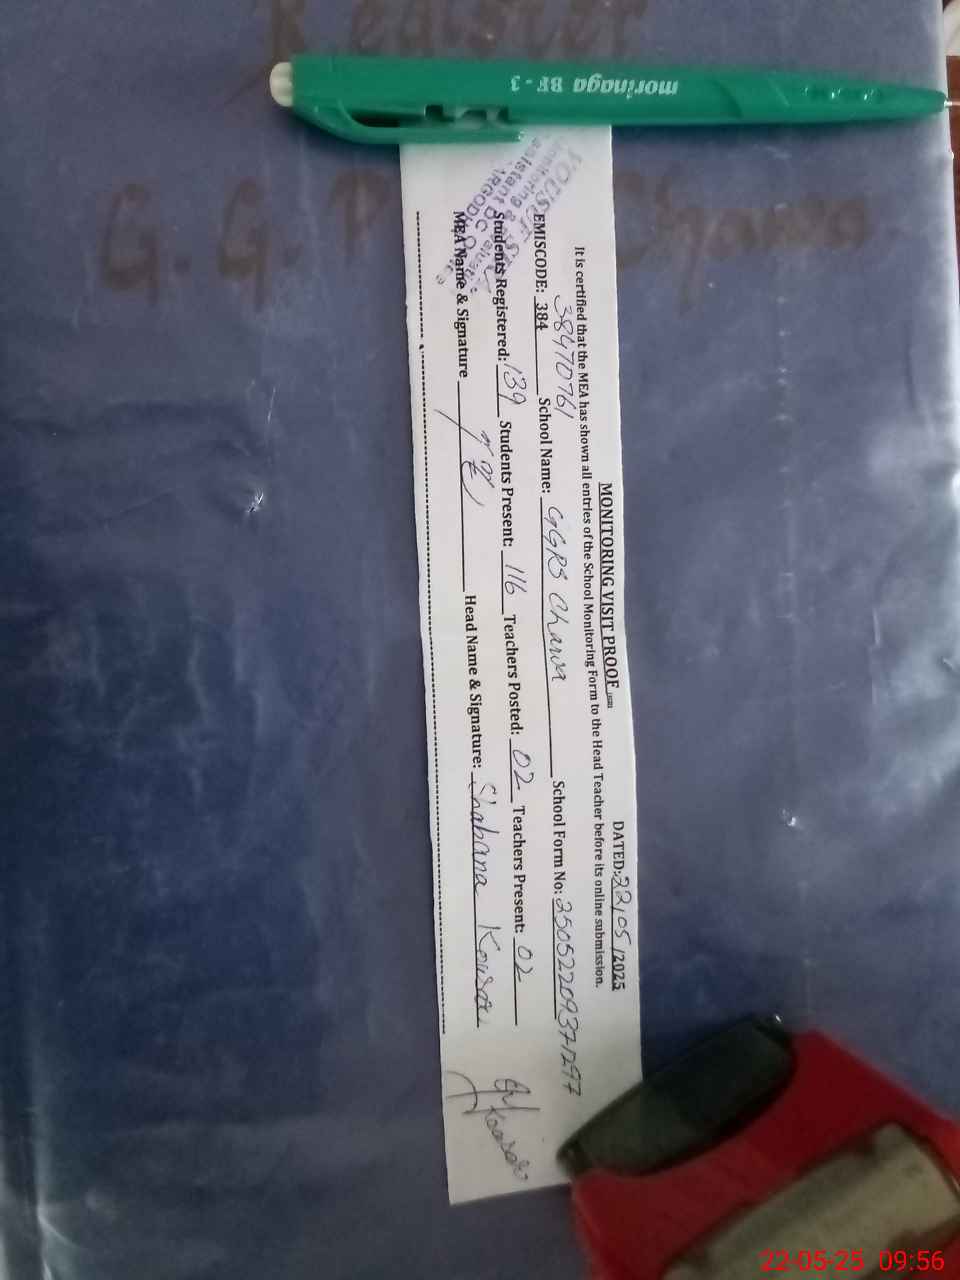 Register
G.G. P Chawa
morinaga BF-3
MONITORING VISIT PROOF
DATED:22/05/2025
It is certified that the MEA has shown all entries of the School Monitoring Form to the Head Teacher before its online submission.
38470761
EMISCODE: 384 School Name: GGPS Chawa School Form No: 25052209371297
Students Registered: 139 Students Present: 116 Teachers Posted: 02 Teachers Present: 02
MEA Name & Signature Head Name & Signature: Shabana Kousar
Kousar
Monitoring &
22-05-25 09:56